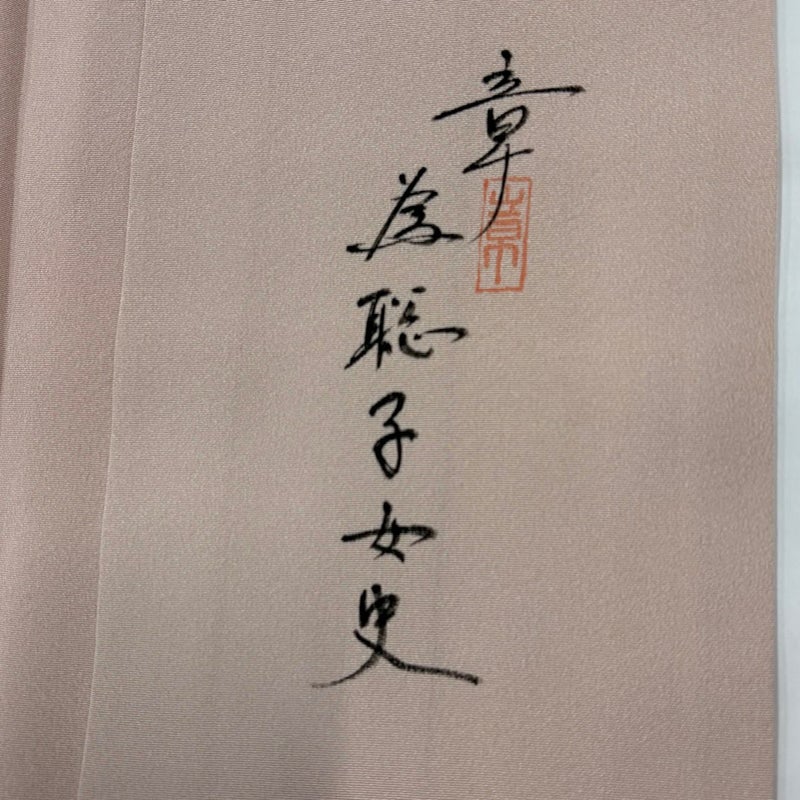 章
為聡子女史